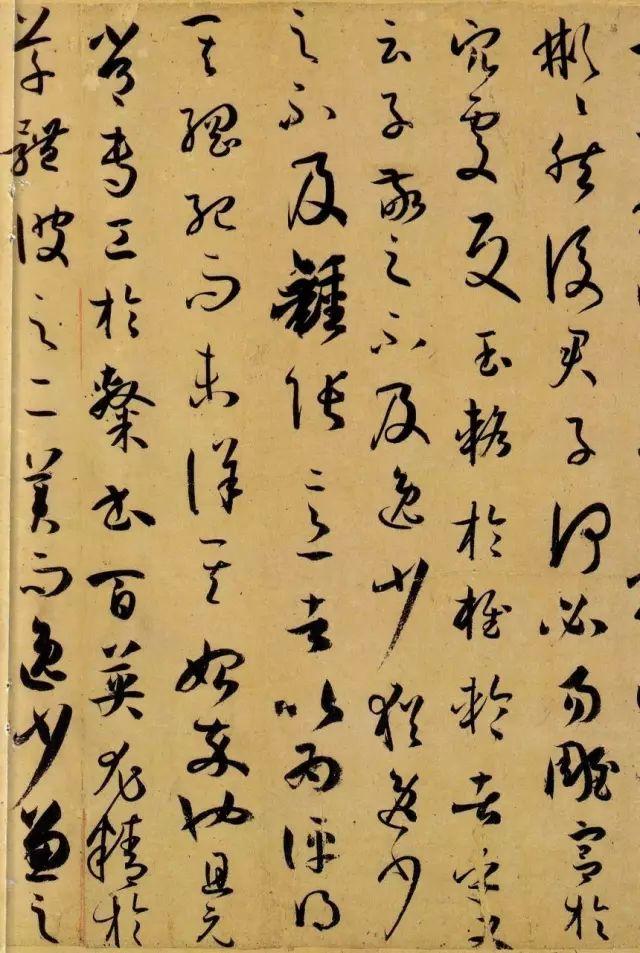 彬彬然後君子何必易雕宮於
穴處反玉輅於椎輪者乎又
云子敬之不及逸少猶逸少
之不及鍾張意者以為評得
其綱紀而未詳其始卒也且元
常專工於隸書百英尤精於
草體彼之二美而逸少兼之